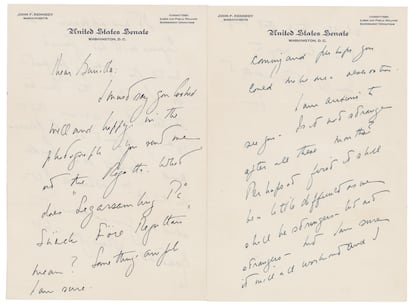 JOHN F. KENNEDY
MASSACHUSETTS
COMMITTEES:
LABOR AND PUBLIC WELFARE
GOVERNMENT OPERATIONS
United States Senate
WASHINGTON, D.C.
Dear Gunilla:
I must say you looked
well and happy in the
photograph you send me
at the Regatta. What
does
Före Regattan"
mean? Something awful
I am sure.
JOHN F. KENNEDY
MASSACHUSETTS
COMMITTEES:
LABOR AND PUBLIC WELFARE
GOVERNMENT OPERATIONS
United States Senate
WASHINGTON, D.C.
coming and perhaps you
could make me a reservation.
I am anxious to
see you. Is it not strange
after all these months?
Perhaps at first it shall
be a little difficult as we
shall be strangers - but not
strangers - but I am sure
it will all work and I